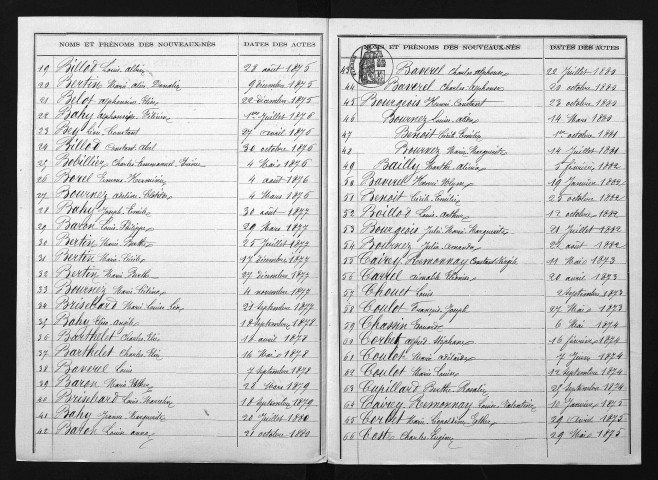 NOMS ET PRÉNOMS DES NOUVEAUX-NÉS DATES DES ACTES
19 Billod Louis albin 28 août 1875
20 Bertin Marie 9 Décembre 1875
21 Belot alphonsine 22 Décembre 1875
22 Bahy alphonsine 1er Juillet 1876
23 Bey Léon Constant 27 avril 1876
24 Billod Constant abel 30 octobre 1876
25 Bobillier Charles Emmanuel 4 Mai 1876
26 Borel Herminie 4 août 1876
27 Bournez 4 Mars 1876
28 Bahy Joseph Emile 30 août 1877
29 Baron Louis Philippe 29 Mars 1877
30 Bertin Marie Berthe 25 Juillet 1877
31 Bertin Marie 17 Décembre 1877
32 Bertin Marie Berthe 27 Décembre 1877
33 Bournez Marie 4 novembre 1877
34 Brischard Marie Louise 23 Septembre 1877
35 Bahy 18 Septembre 1878
36 Barthelet Charles 16 avril 1878
37 Barthelet Charles 16 Mai 1878
38 Baverel Louis 7 Septembre 1878
39 Baron Marie Esther 28 Mars 1879
40 Brischard Louis 18 Septembre 1879
41 Bahy Jeanne Marguerite 20 Juillet 1880
42 Baron Louise anna 21 octobre 1880
NOMS ET PRÉNOMS DES NOUVEAUX-NÉS DATES DES ACTES
43 Baverel Charles alphonse 22 Juillet 1880
44 Baverel Charles alphonse 20 octobre 1880
45 Bourgeois Henri Constant 23 octobre 1880
46 Bournez Louise 14 Mars 1880
47 Benoit 1er octobre 1881
48 Bournez Marie Marguerite 14 Juillet 1881
49 Bailly Marthe 5 février 1882
50 Baverel Henri 19 Janvier 1882
51 Benoit 28 octobre 1882
52 Boillot Louis arthur 12 octobre 1882
53 Bourgeois Julie Marie Marguerite 21 Juillet 1882
54 Bournez Julie 22 août 1882
55 Cairey Remonnay Constant 11 Mai 1873
56 Carrel 20 avril 1873
57 Chouet Louis 2 Septembre 1873
58 Coulot François Joseph 27 Mai 1873
59 Chassin 6 Mai 1874
60 Corbet alfred Stéphane 16 février 1874
61 Coulot Marie adélaïde 7 Juin 1874
62 Coulot Marie Louise 12 Septembre 1874
63 Cupillard Berthe Rosalie 27 Septembre 1874
64 Cairey Remonnay Louise Valentine 10 Janvier 1875
65 Marie Esther 29 avril 1875
66 Charles Eugène 29 Mai 1875